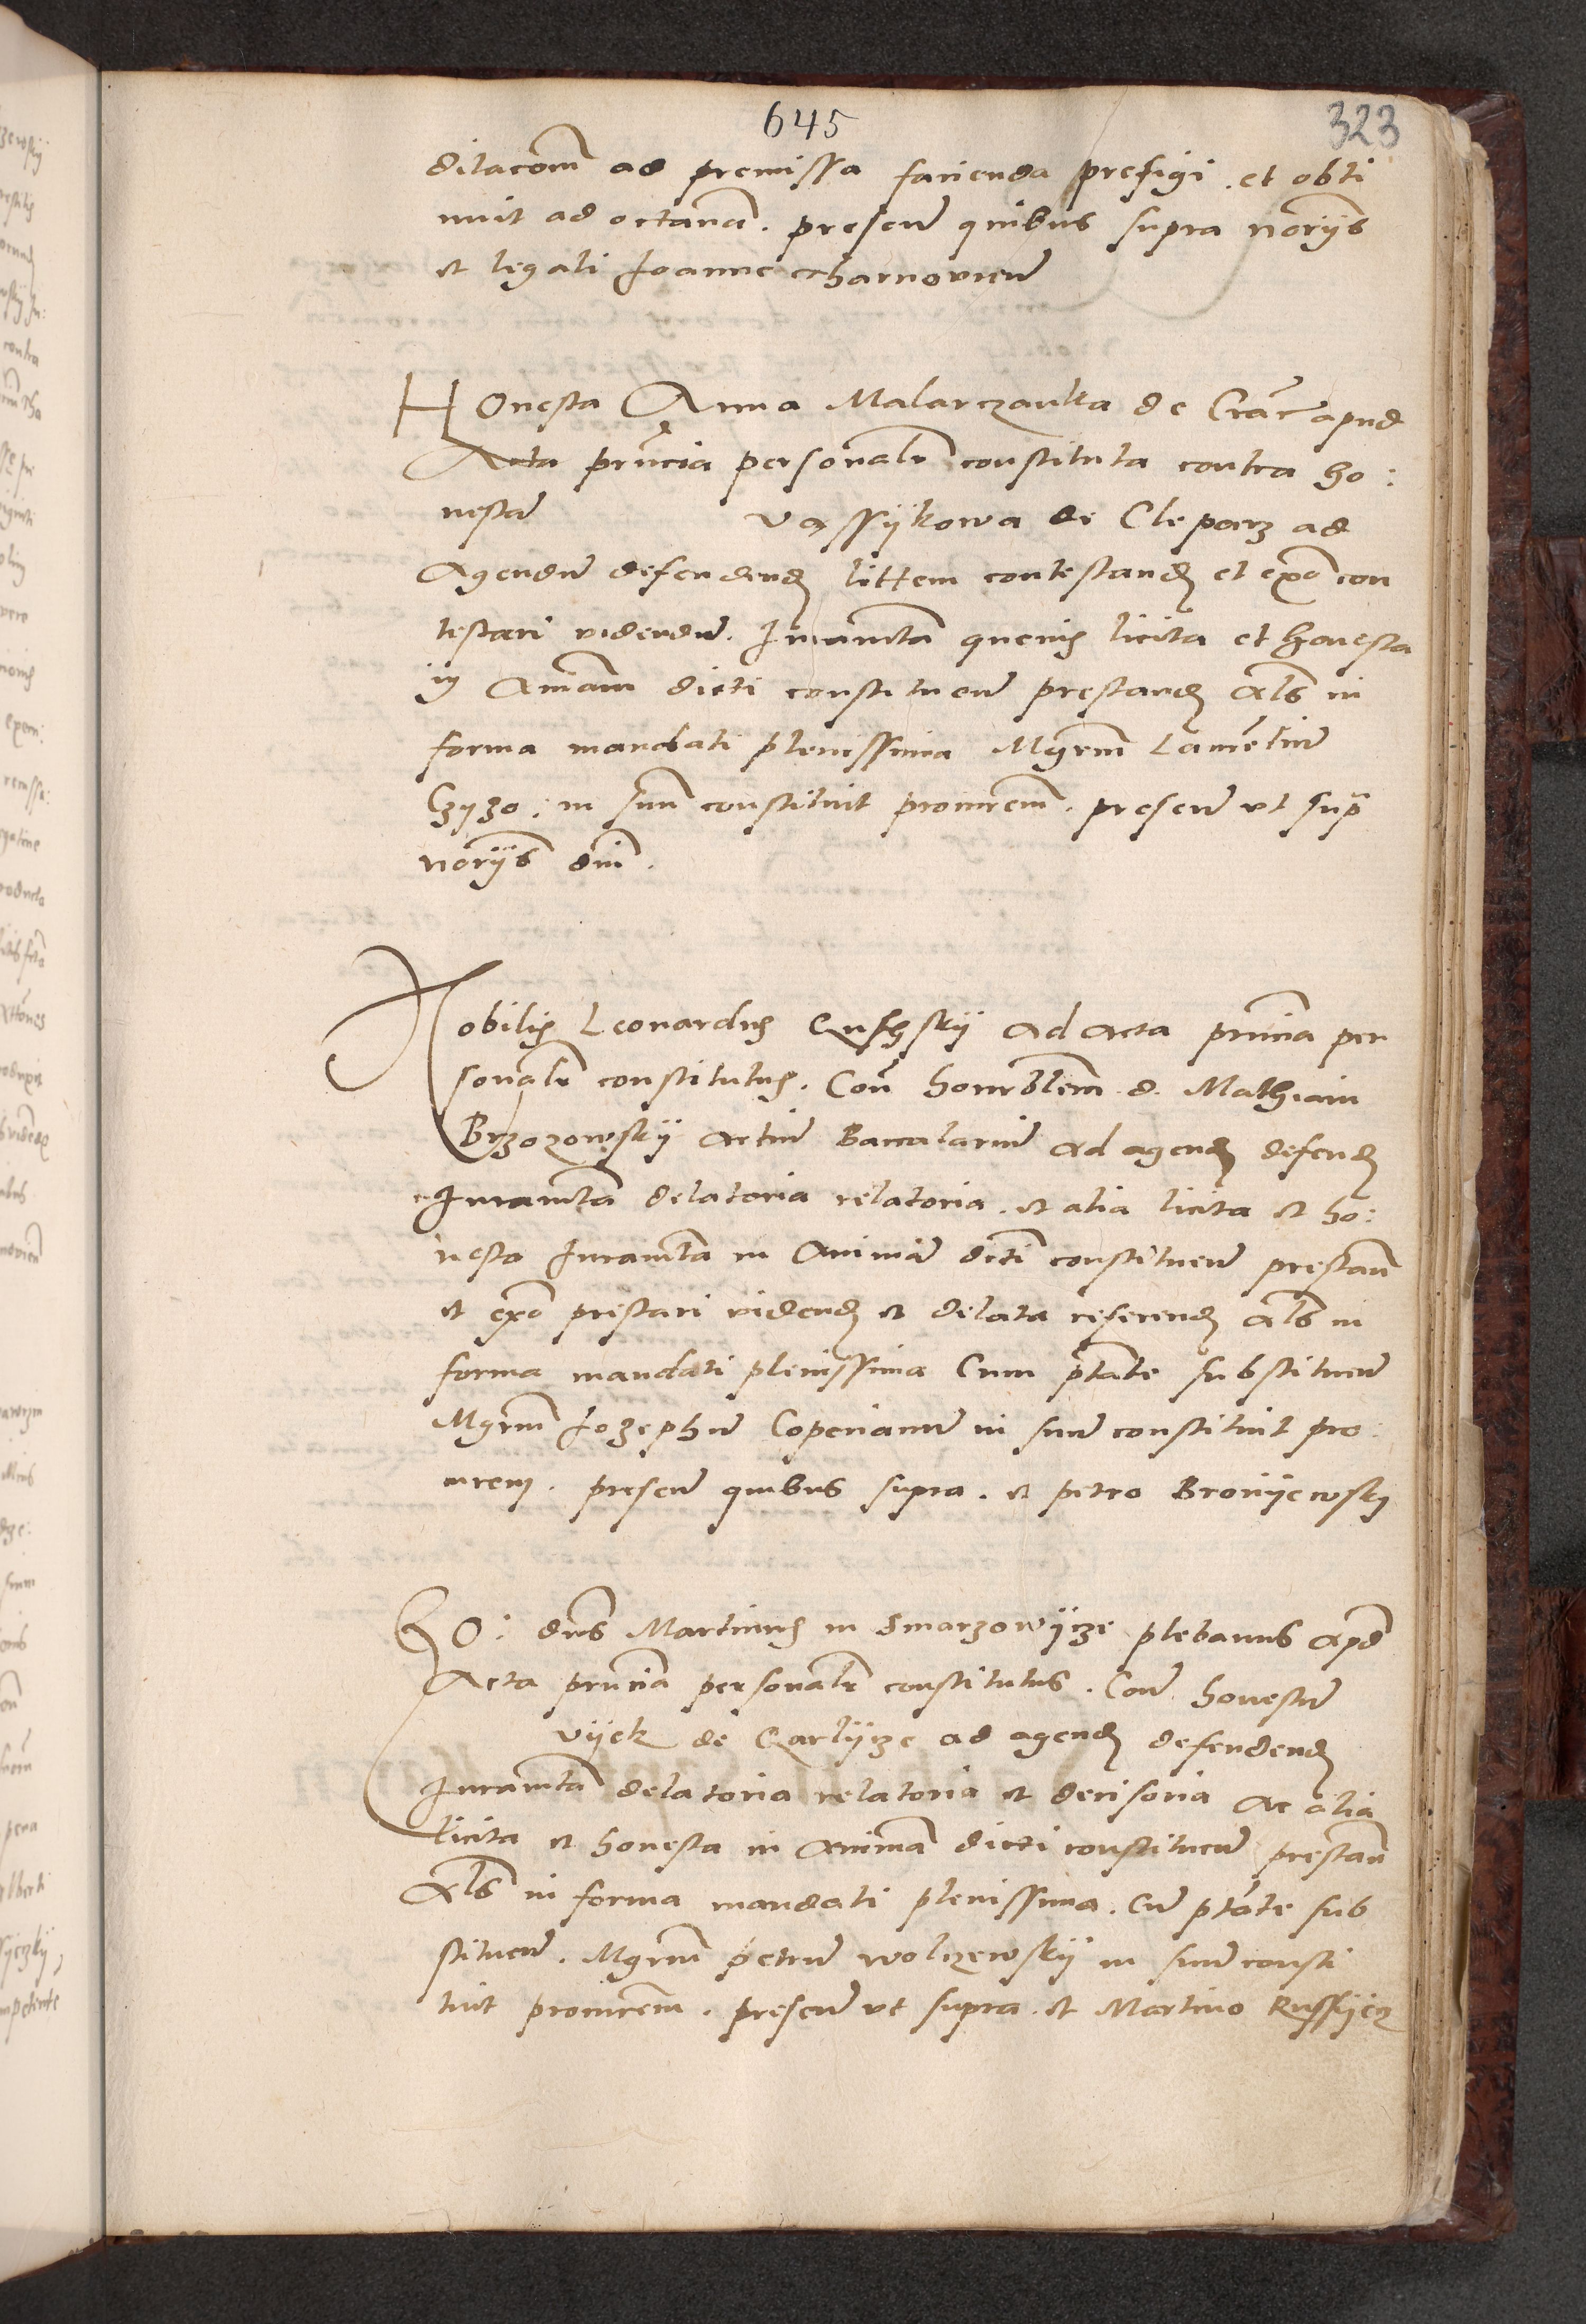 645
323
dilacōm ad premissa facienda prefigi . et obti
nuit ad octavā . presen̄ quibus supra nōrijs
et legali Joanne charnovien̄
HOnesta Anna Malarczanka de Crac̄ apud
Acta prn̄cia personalr̄ constituta contra ho:
nestā Vassijkowa de Cleparz ad
Agendū defendend littem contestand et ex̄o con
testari videndū . Juramt̄a quevis licita et honesta
in Aniām dicti constituen̄ prestand als̄ in
forma mandati plenissima Mgrm̄ Laurēntiū
Czyzo: in suū constituit procurem̄ . presen̄ ut supᵃ
nōrijs dnī .
Nobilis Leonardus ad Acta prn̄cia per
sonalr̄ constitutus . Con̄ honrblem̄ d. Mathiam
Brzozowskij artiū Baccalariū ad agend defend
Juramt̄a delatoria relatoria . et alia licita et ho:
nesta Juramt̄a in Animā dicti constituen̄ prestan̄
et ex̄o prestari vidend et delata referend als̄ in
forma mandati plenissima Cum ptāte substituen̄
Mgrm̄ Jozephū Coperianū in suū constituit pro
curem . presen̄ quibus supra . et petro Bronijewsky
HO: dn̄s Martinus in Smarzowijcze plebanus apd̄
Acta prn̄cia personalr̄ constitutus . Con̄ honestū
vijek de Carlijcze ad agend defendend
Juramt̄a delatoria relatoria et decisoria ac alia
licita et honesta in Animā dicti constituen̄ prestan̄
Als̄ in forma mandati plenissima . Cū ptāte sub
stituen̄ . Mgrm̄ petrū wolczewskij in suū consti
tuit procurem̄ . presen̄ ut supra . et Martino Russijcz